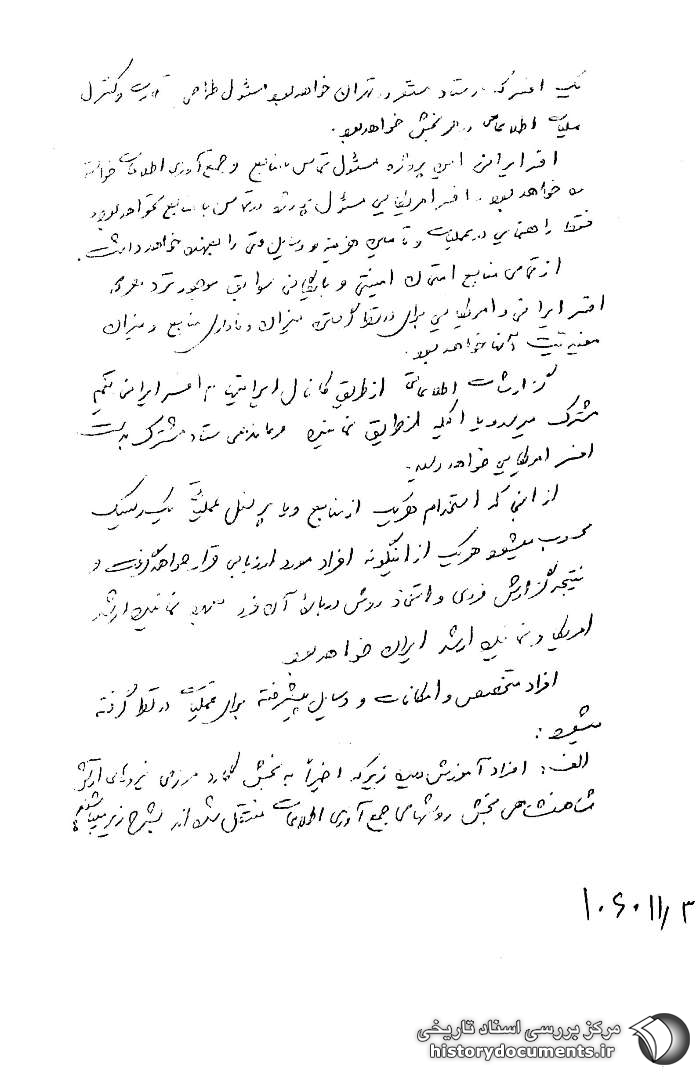 یک افسر که در ستاد مستقر در تهران خواهد بود مسئول طراحی هدایت و کنترل
عملیات اطلاعاتی در هر بخش خواهد بود.
افسر ایرانی این پروژه مسئول تماس با منابع و جمع آوری اطلاعات خواسته
شده خواهد بود. افسر امریکایی مسئول در تماس با منابع نخواهد بود و
فقط راهنمایی در عملیات و تامین هزینه و وسایل فنی را بعهده خواهد داشت.
از تمامی منابع امتحان امنیتی و بایگانی سوابق موجود نزد
افسر ایرانی و امریکایی برای در نظر گرفتن میزان وفاداری منابع و میزان
مفیدیت آنها خواهد بود.
گزارشات اطلاعاتی از طریق کانال ایرانی به افسر ایرانی تیم
مشترک میرسد و یا اینکه از طریق نماینده فرماندهی ستاد مشترک بدست
افسر امریکایی خواهد رسید.
از این که استخدام هریک از منابع و یا پرسنل عملیاتی یک ریسک
محسوب میشود هریک از اینگونه افراد مورد ارزیابی قرار خواهد گرفت و
نتیجه گزارش فردی و اتخاذ روش درباره آن فرد بعهده نماینده ارشد
امریکا و نماینده ارشد ایران خواهد بود.
افراد متخصص و امکانات و وسایل پیشرفته برای عملیات در نظر گرفته
میشود:
الف: افراد آموزش دیده زیر که اخیراً به بخش گارد مرزی نیروهای ارتش
شاهنشاهی بخش روشهای جمع آوری اطلاعات منتقل شده اند بشرح زیر میباشند
۱۰۶۰۱۱/۳
مرکز بررسی اسناد تاریخی
historydocuments.ir